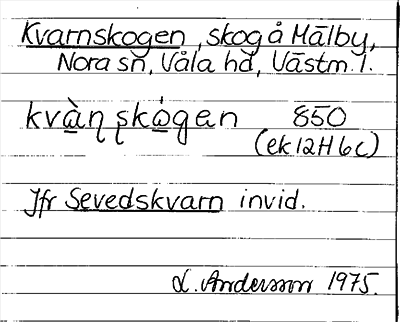 Kvarnskogen, skog å Mälby,
Nora sn, Våla hd, Västm. l.
kvà̱ɳʂkó̱gen 850
(ek 12H 6c)
Jfr Sevedskvarn invid.
L. Andersson 1975.